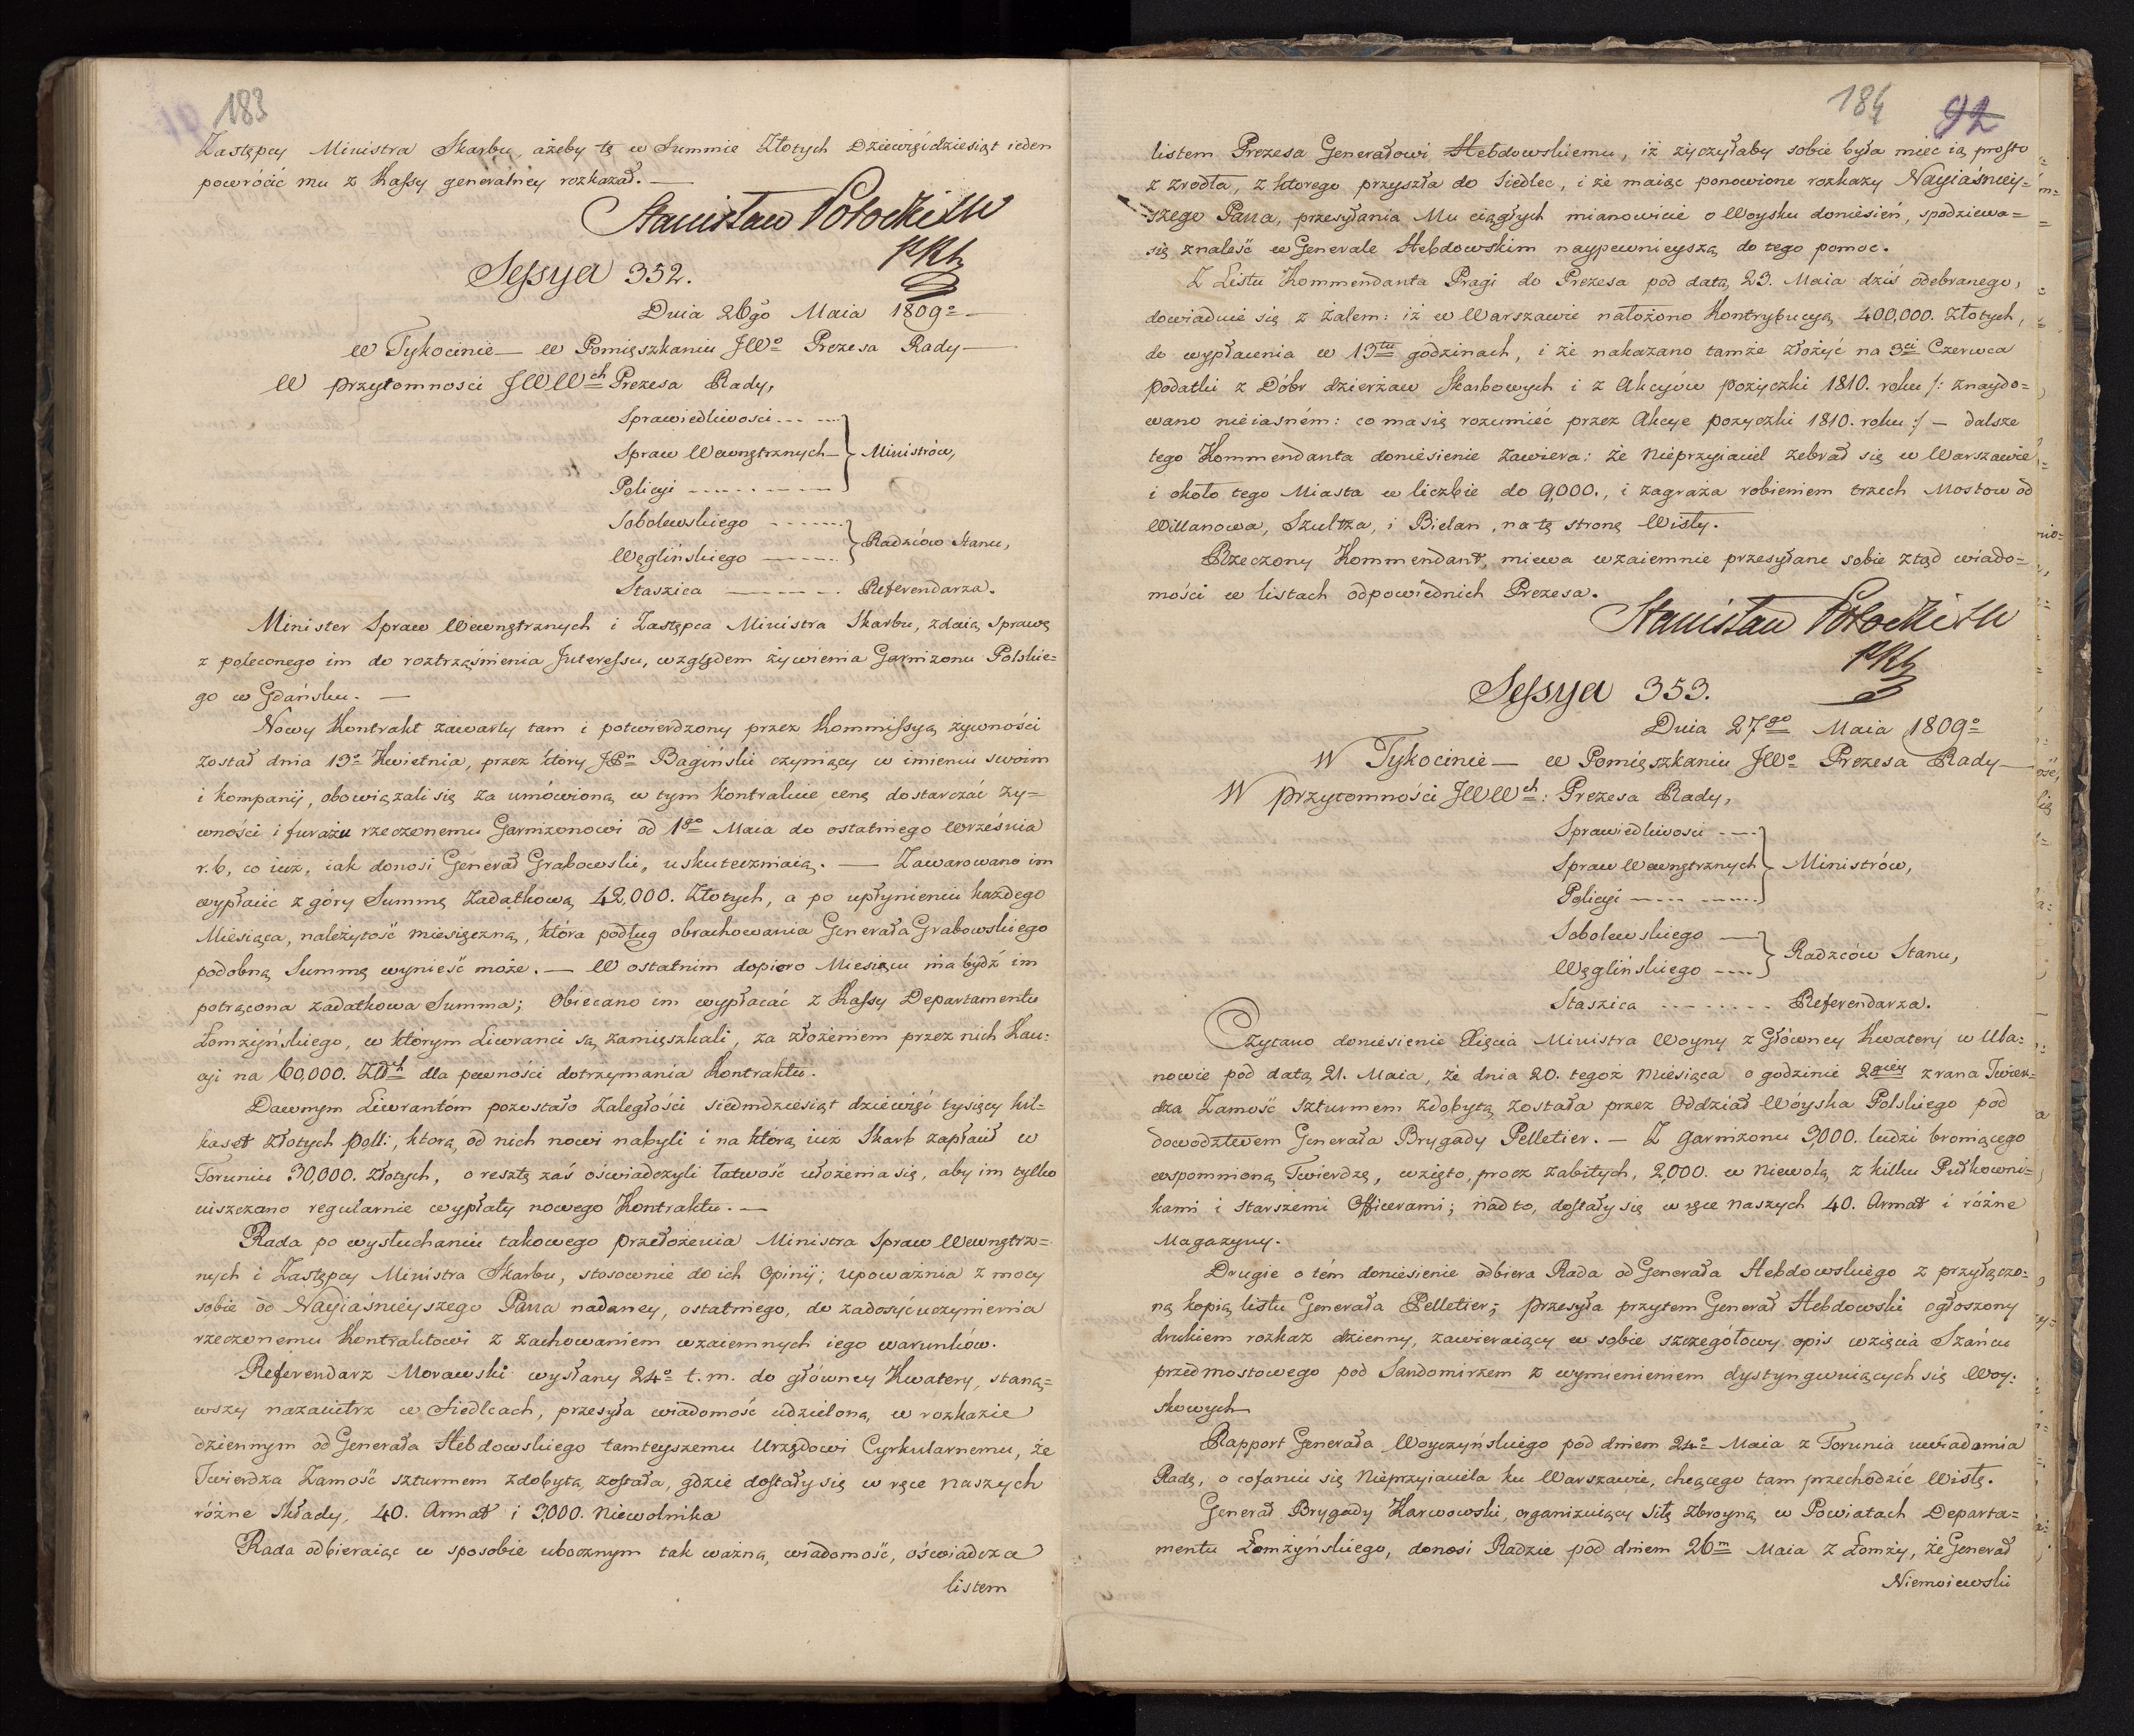 183
Zastępcy Ministra Skarbu, ażeby tę w Summie Złotych Dziewięćdziesiąt ieden
powrócić mu z Kassy generalney rozkazał. —
Stanisław Potocki
Sessya 352.
Dnia 26go Maia 1809o —
w Tykocinie — w Pomięszkaniu JWo Prezesa Rady —
W przytomnosci JWWch Prezesa Rady,
Sprawiedliwosci
Spraw Wewnętrznych — Ministrów,
Policyi
Sobolewskiego
Węglińskiego — Radzców Stanu,
Staszica — Referendarza.
Minister Spraw Wewnętrznych i Zastępca Ministra Skarbu, zdaią sprawę
z poleconego im do roztrząśnienia Interessu, względem żywienia Garnizonu Polskie=
go w Gdańsku. —
Nowy Kontrakt zawarty tam i potwierdzony przez Kommissyą żywności
został dnia 13o Kwietnia, przez który JPn Bagiński czyniący w imieniu swoim
i kompanij, obowiązali się za umówioną w tym Kontrakcie cenę dostarczać ży=
wności i furażu rzeczonemu Garnizonowi od 1go Maia do ostatniego Września
r. b, co iuż, iak donosi Generał Grabowski, uskuteczniaią. — Zawarowano im
wypłacić z góry Summę zadatkową 42,000. Złotych, a po upłynieniu każdego
Miesiąca, należytość miesięczną, która podług obrachowania Generała Grabowskiego
podobną Summę wynieść może. — W ostatnim dopiero Miesiącu ma bydź im
potrącona zadatkowa Summa; Obiecano im wypłacać z Kassy Departamentu
Łomżyńskiego, w którym Liwranci są zamięszkali, za złożeniem przez nich Kau=
cyi na 60,000. Złotch dla pewności dotrzymania Kontraktu.
Dawnym Liwrantóm pozostało zaległości siedmdziesiąt dziewięć tysięcy kil=
kaset złotych poll:, którą od nich nowi nabyli i na którą iuż Skarb zapłacił w
Toruniu 30,000. złotych, o resztę zaś oświadczyli łatwość ułożenia się, aby im tylko
uiszczano regularnie wypłaty nowego Kontraktu. —
Rada po wysłuchaniu takowego przełożenia Ministra Spraw Wewnętrz=
nych i Zastępcy Ministra Skarbu, stosownie do ich Opinij; upoważnia z mocy
sobie od Nayiaśnieyszego Pana nadaney, ostatniego, do zadosyćuczynienia
rzeczonemu Kontraktowi z zachowaniem wzaiemnych iego warunków.
Referendarz Morawski wysłany 24o t. m. do główney Kwatery, staną=
wszy nazaiutrz w Siedlcach, przesyła wiadomość udzieloną w rozkazie
dziennym od Generała Hebdowskiego tamteyszemu Urzędowi Cyrkularnemu, że
Twierdza Zamość szturmem zdobyta została, gdzie dostały się w ręce naszych
różne Składy, 40. Armat i 3,000. Niewolnika
Rada odbieraiąc w sposobie ubocznym tak ważną wiadomość, oświadcza
listem
184
92
listem Prezesa Generałowi Hebdowskiemu, iż życzyłaby sobie była mieć ią prosto
z zrodła, z ktorego przyszła do Siedlec, i że maiąc ponowione rozkazy Nayiaśniey=
szego Pana, przesyłania Mu ciągłych mianowicie o Woysku doniesień, spodziewa=
się znaleść w Generale Hebdowskim naypewnieyszą do tego pomoc.
Z Listu Kommendanta Pragi do Prezesa pod datą 23. Maia dziś odebranego,
dowiaduie się z żalem: iż w Warszawie nałożono Kontrybucyą 400,000. złotych,
do wypłacenia w 13tu godzinach, i że nakazano tamże złożyć na 3ci Czerwca
podatki z Dóbr dzierżaw Skarbowych i z Akcyów pożyczki 1810. roku /: znaydo=
wano nieiasném: co ma się rozumieć przez Akcye pożyczki 1810. roku :/ — dalsze
tego Kommendanta doniesienie zawiera: że Nieprzyiaciel zebrał się w Warszawie
i około tego Miasta w liczbie do 9,000., i zagraża robieniem trzech Mostow od
Willanowa, Szultza, i Bielan, na tę stronę Wisły.
Rzeczony Kommendant, miewa wzaiemnie przesyłane sobie ztąd wiado=
mości w listach odpowiednich Prezesa.
Stanisław Potocki
Sessya 353.
Dnia 27go Maia 1809o
W Tykocinie — w Pomięszkaniu JWo Prezesa Rady —
W przytomności JWWch: Prezesa Rady,
Sprawiedliwosci
Spraw Wewnętrznych Ministrów,
Policyi
Sobolewskiego
Węglińskiego Radzców Stanu,
Staszica Referendarza.
Czytano doniesienie Xięcia Ministra Woyny z Główney Kwatery w Ula=
nowie pod datą 21. Maia, że dnia 20. tegoż Miesiąca o godzinie 2giey zrana Twier=
dza Zamość szturmem zdobytą została przez Oddział Wóyska Polskiego pod
dowodztwem Generała Brygady Pelletier. — Z Garnizonu 3,000. ludzi broniącego
wspomnioną Twierdzę, wzięto, procz zabitych, 2,000. w niewolą z kilku Pułkowni=
kami i starszemi Officerami; nad to, dostały się w ręce naszych 40. Armat i różne
Magazyny.
Drugie o tém doniesienie odbiera Rada od Generała Hebdowskiego z przyłączo=
ną kopią listu Generała Pelletier; przesyła przytem Generał Hebdowski ogłoszony
drukiem rozkaz dzienny, zawieraiący w sobie szczegółowy opis wzięcia Szańcu
przedmostowego pod Sandomirzem z wymienieniem dystyngwuiących się Woy=
skowych
Rapport Generała Woyczyńskiego pod dniem 24o Maia z Torunia uwiadamia
Radę, o cofaniu się Nieprzyiaciela ku Warszawie, chcącego tam przechodzić Wisłę.
Generał Brygady Karwowski, organizuiący siłę zbroyną w Powiatach Departa=
mentu Łomżyńskiego, donosi Radzie pod dniem 26m Maia z Łomży, że Generał
Niemoiewski